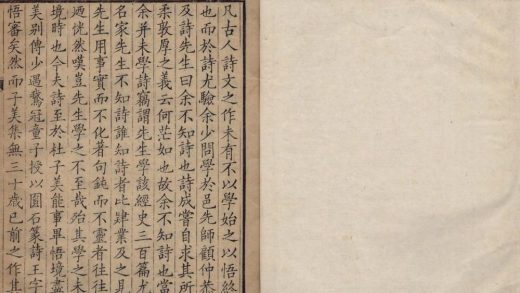 凡古人詩文之作未有不以學始之以悟終
也而於詩尤驗余少問學於邑先師顧仲恭
及詩先生曰余不知詩也詩成嘗自求其所
柔敦厚之義云何茫如也故余不知詩也當
余并未學詩竊謂先生學該經史三百篇尤
名家先生不知詩誰知詩者此肄業及之見
先生用事實而不化著句鈍而不靈者往往
迺恍然嘆豈先生學之不至哉殆其學之未
境時也今夫詩至於杜子美能事畢悟境盡
美別傳少遇鵞冠童子授以園石篆詩王字
悟審矣然而子美集無三十歲已前之作其